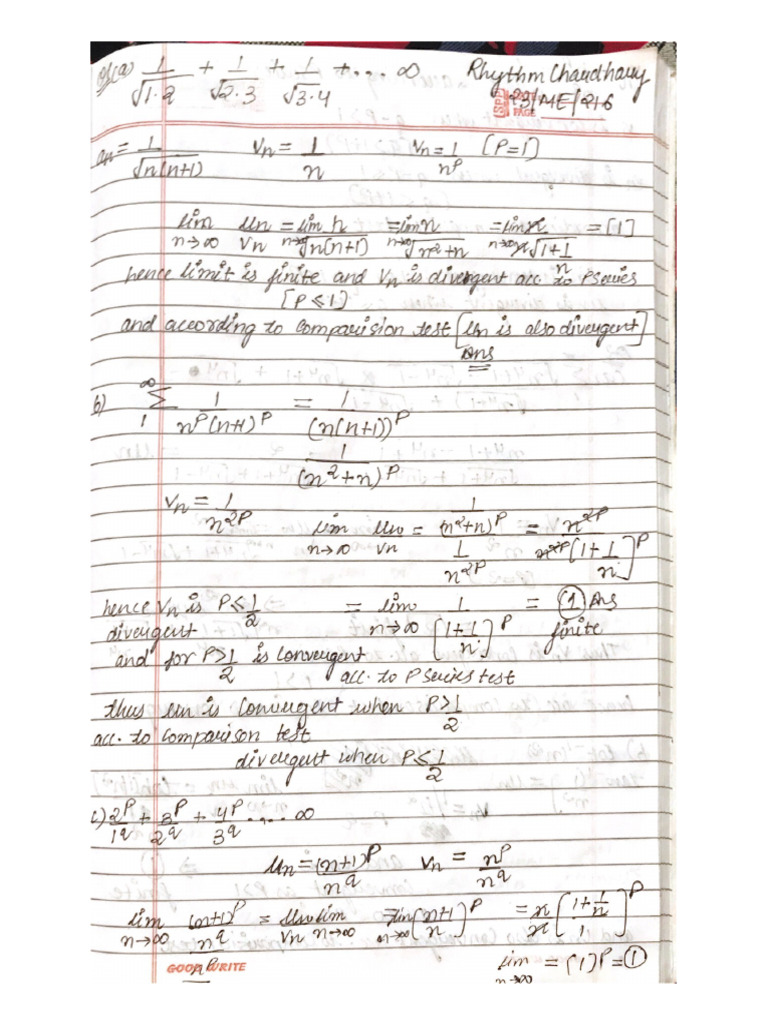 Q1(a) 1/√1·2 + 1/√2·3 + 1/√3·4 + ... ∞ Rhythm Chaudhary
23/ME/216
PAGE
an = 1/√n(n+1) Vn = 1/n Vn = 1/n^P [P=1]
lim n→∞ un/Vn = lim n→∞ n/√n(n+1) = lim n→∞ n/√n²+n = lim n→∞ n/n√1+1/n = [1]
hence limit is finite and Vn is divergent acc. to P series
[P ≤ 1]
and according to comparision test [un is also divergent]
Ans
b) ∞ Σ 1 1/n^P(n+1)^P = 1/(n(n+1))^P
1/(n²+n)^P
Vn = 1/n^2P lim n→∞ un/Vn = 1/(n²+n)^P / 1/n^2P = n^2P/n^2P[1+1/n]^P
hence Vn is P ≤ 1/2 = lim n→∞ 1/[1+1/n]^P = (1) Ans
divergent finite
and for P > 1/2 is convergent
acc. to P series test
thus un is convergent when P > 1/2
acc. to comparison test
divergent when P ≤ 1/2
c) 2^P/1^q + 3^P/2^q + 4^P/3^q .... ∞
un = (n+1)^P/n^q Vn = n^P/n^q
lim n→∞ (n+1)^P/n^q / n^P = un/Vn lim n→∞ = lim n→∞ (n+1/n)^P = n/n [1+1/n/1]^P
GOOD WRITE
lim n→∞ = [1]^P = (1)